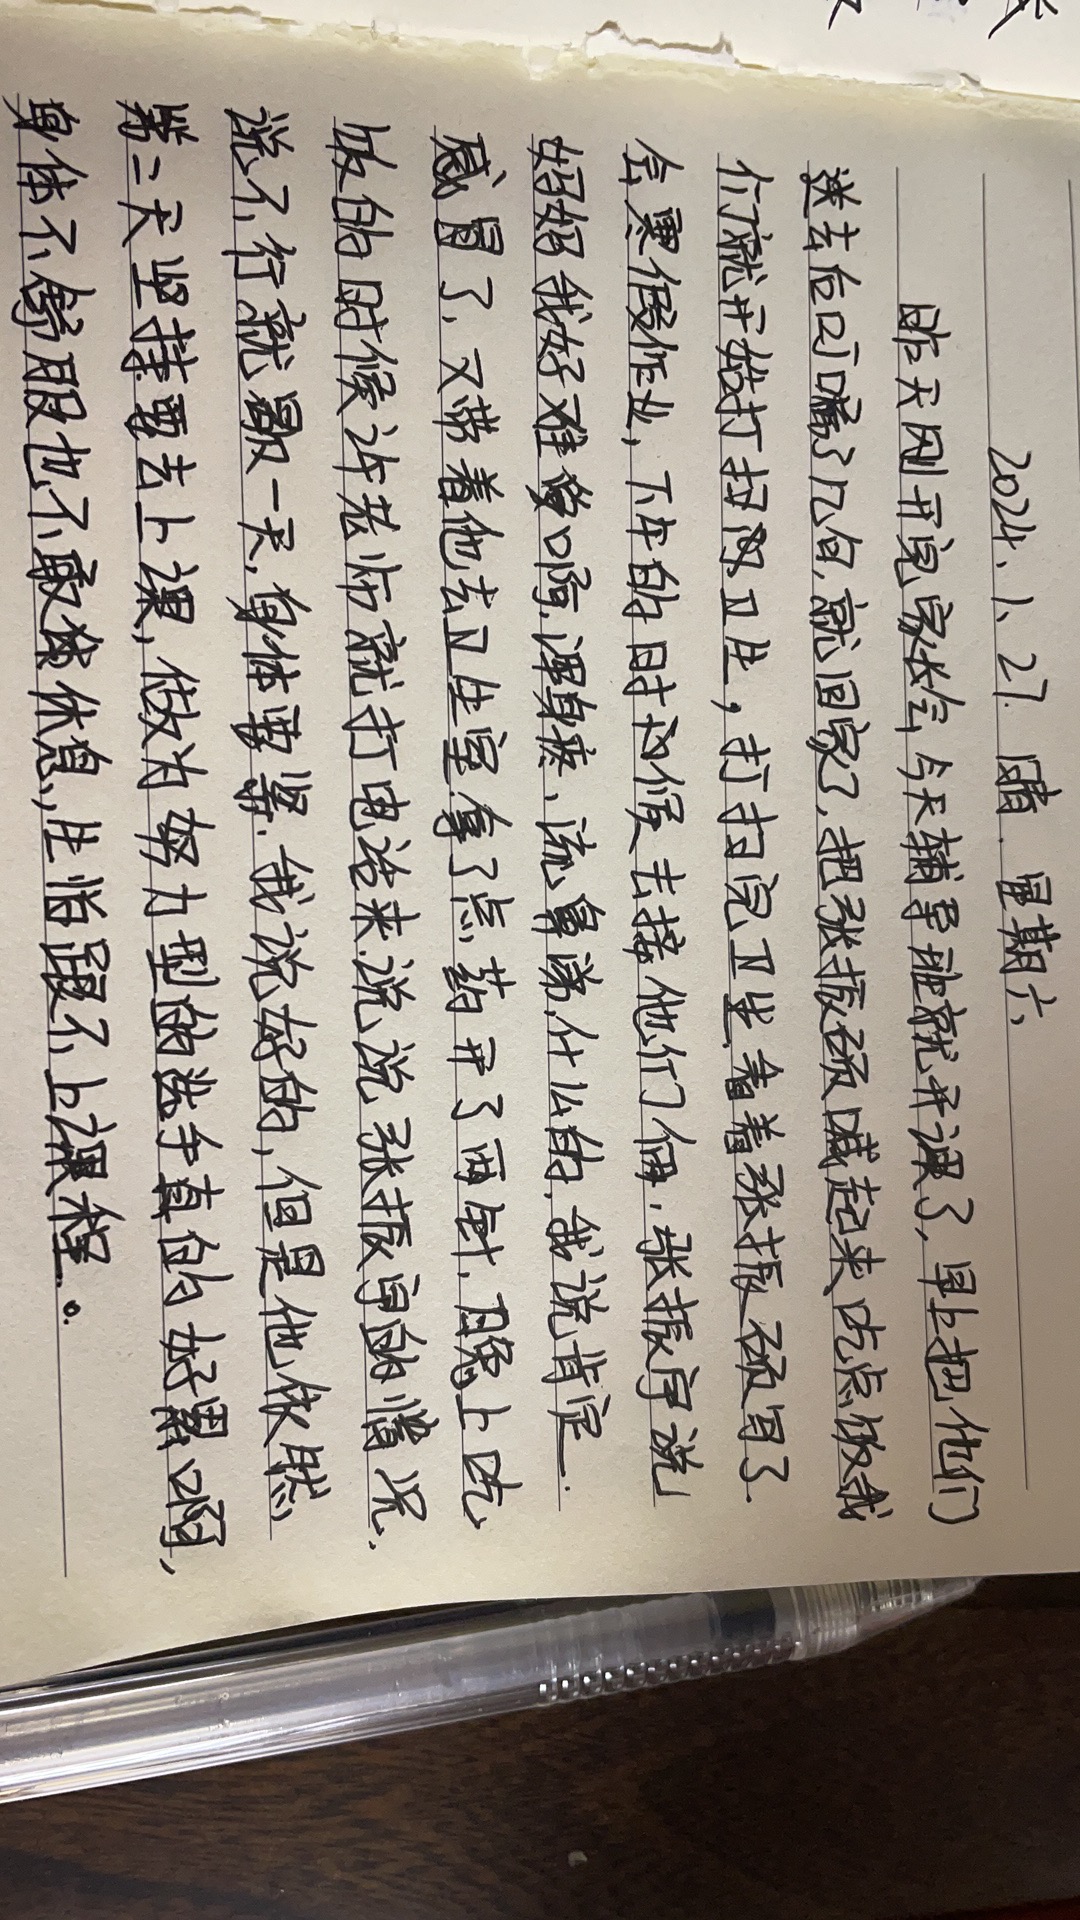 2024、1、27. 晴. 星期六、
昨天刚开完家长会,今天辅导班就开课了,早上把他们
送去后叮嘱了几句,就回家了,把张振硕喊起来吃点饭我
们就开始打扫卫生,打扫完卫生着着张振硕写了
会寒假作业,下午的时候去接他们俩,张振宇说
妈妈我好难受啊,浑身疼、流鼻涕,什么的,我说肯定
感冒了,又带着他去卫生室,拿了点药开了两针,晚上吃
饭的时候许老师就打电话来,说说张振宇的情况.
说不行就歇一天,身体要紧.我说好的,但是他依然
第二天坚持要去上课,做为努力型的选手真的好累啊,
身体不舒服也不敢休息,生怕跟不上课程。